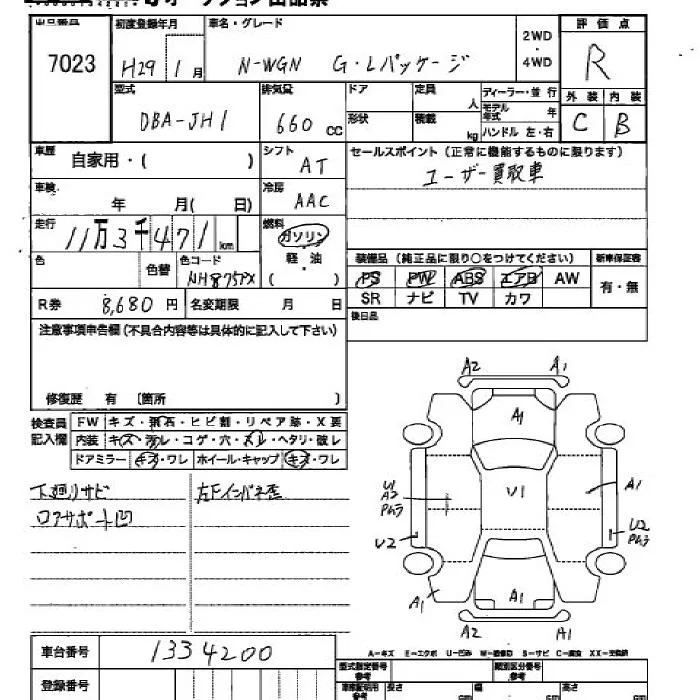 出品番号 初度登録年月 車名・グレード 2WD・4WD 評価点
7023 H29 1月 N-WGN G・Lパッケージ R
型式 排気量 ドア 定員 人 ディーラー・並行 外装 内装
DBA-JH1 660 CC 形状 積載 kg モデル年式 年 ハンドル 左・右 C B
車歴 自家用・( ) シフト AT セールスポイント(正常に機能するものに限ります)
ユーザー買取車
車検 年 月( 日) 冷房 AAC
走行 11万3千471km 燃料 ガソリン 軽・油 ( )
色 色替 色コード NH875PX
装備品(純正品に限り○をつけてください) 新車保証書
PS PW ABS エアB AW 有・無
SR ナビ TV カワ
R券 8,680円 名変期限 月 日 後日品
注意事項申告欄(不具合内容等は具体的に記入して下さい)
修復歴 有 〔箇所 〕
検査員記入欄 FW キズ・飛石・ヒビ割・リペア跡・X要
内装 キズ・汚レ・コゲ・穴・スレ・ヘタリ・破レ
ドアミラー キズ・ワレ ホイール・キャップ キズ・ワレ
下廻リサビ 左下インパネ歪
コアサポート凹
A2 A1
A1
U1
A2
U1 A1
U2 U2
A1 A1
A2 A1
A-キズ E-エクボ U-凹み W-補修跡 S-サビ C-腐食 XX-交換済
車台番号 1334200
登録番号
型式指定番号 参考 類別区分番号 参考
車庫証明用 参考 長さ cm 幅 cm 高さ cm